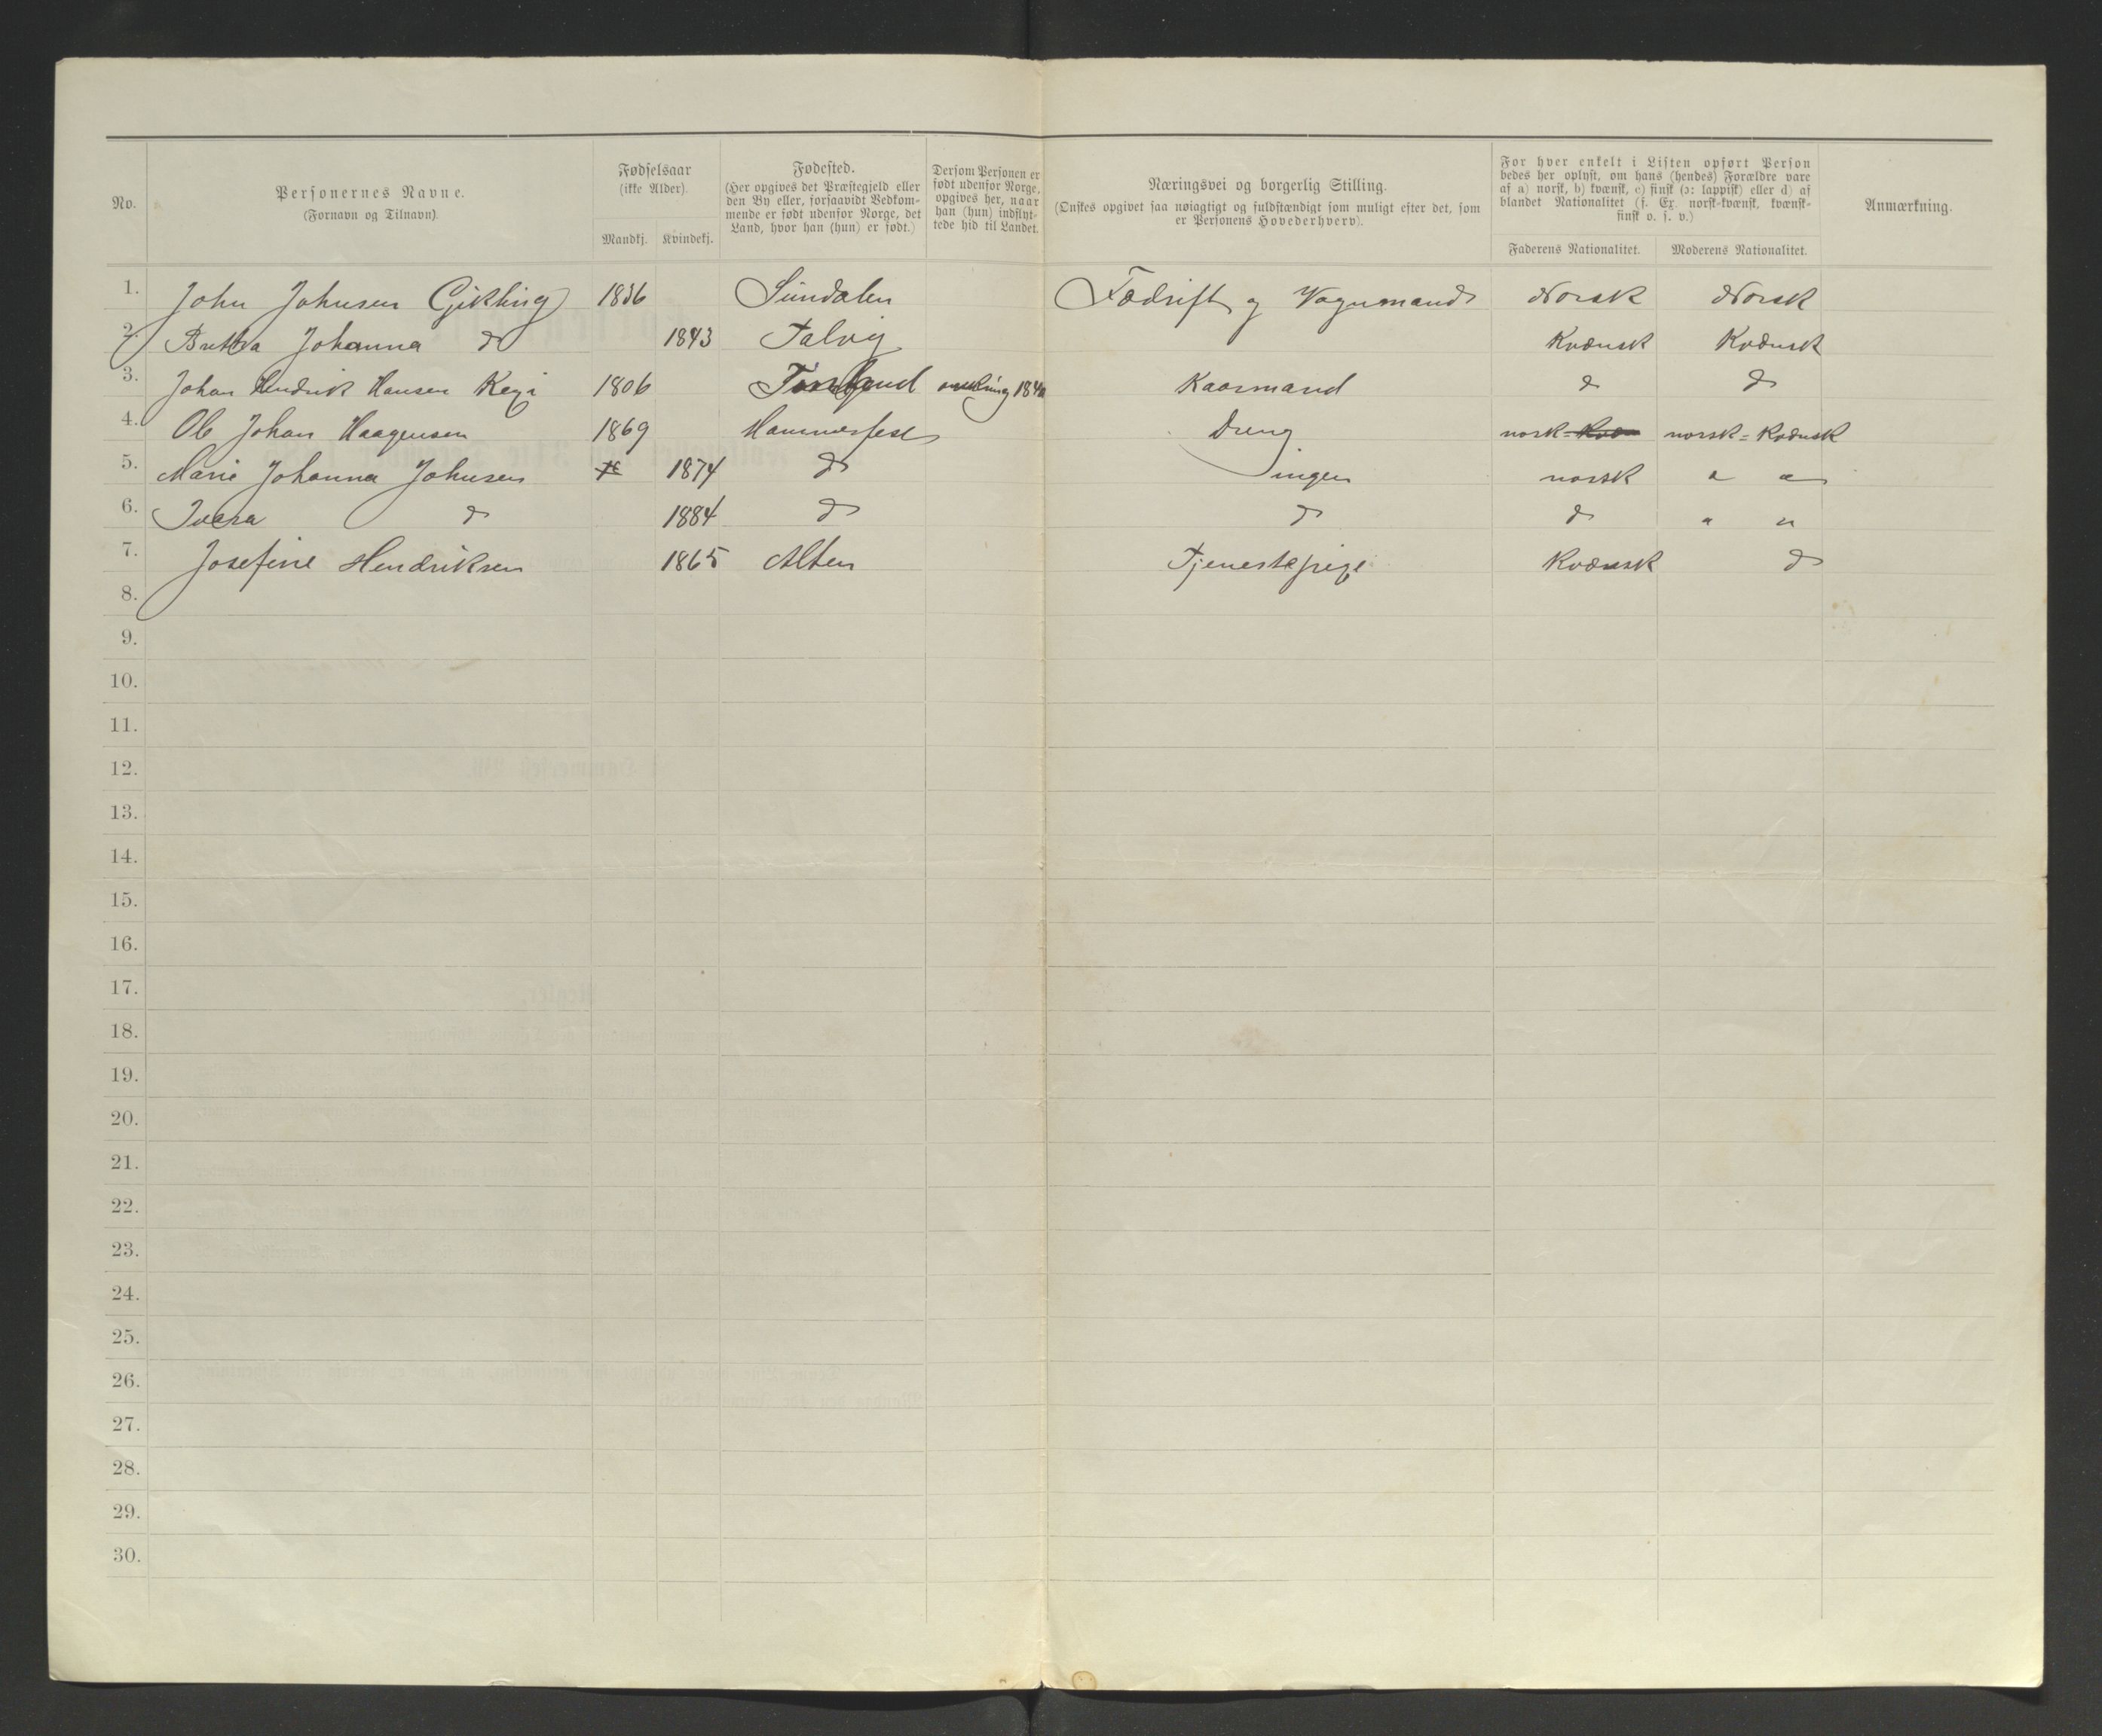 No.
Personernes Navne.
(Fornavn og Tilnavn).
Fødselsaar
(ikke Alder).
Mandkj. Kvindekj.
Fødested.
(Her opgives det Præstegjeld eller
den By eller, forsaavidt Vedkom-
mende er født udenfor Norge, det
Land, hvor han (hun) er født.)
Dersom Personen er
født udenfor Norge,
opgives her, naar
han (hun) indflyt-
tede hid til Landet.
Næringsvei og borgerlig Stilling.
(Ønskes opgivet saa nøiagtigt og fuldstændigt som muligt efter det, som
er Personens Hovederhverv).
For hver enkelt i Listen opført Person
bedes her oplyst, om hans (hendes) Forældre vare
af a) norsk, b) kvænsk, c) finsk (ɔ: lappisk) eller d) af
blandet Nationalitet (f. Ex. norsk-kvænsk, kvænsk-
finsk o. s. v.)
Faderens Nationalitet. Moderens Nationalitet.
Anmærkning.
1. John Johnsen Gikling 1836 Sundalen Fædrift og Vognmand Norsk Norsk
2. Johanna do 1843 Talvig Kvænsk Kvænsk
3. Johan Hendrik Hansen 1806 Finland omkring Kaarmand do do
4. Ole Johan Haagensen 1869 Hammerfest Dreng norsk norsk-Kvænsk
5. Marie Johanna Johnsen 1874 do ingen norsk " "
6. do 1884 do do do " "
7. Josefine Hendriksen 1865 Alten Tjenestepige Kvænsk do
8.
9.
10.
11.
12.
13.
14.
15.
16.
17.
18.
19.
20.
21.
22.
23.
24.
25.
26.
27.
28.
29.
30.